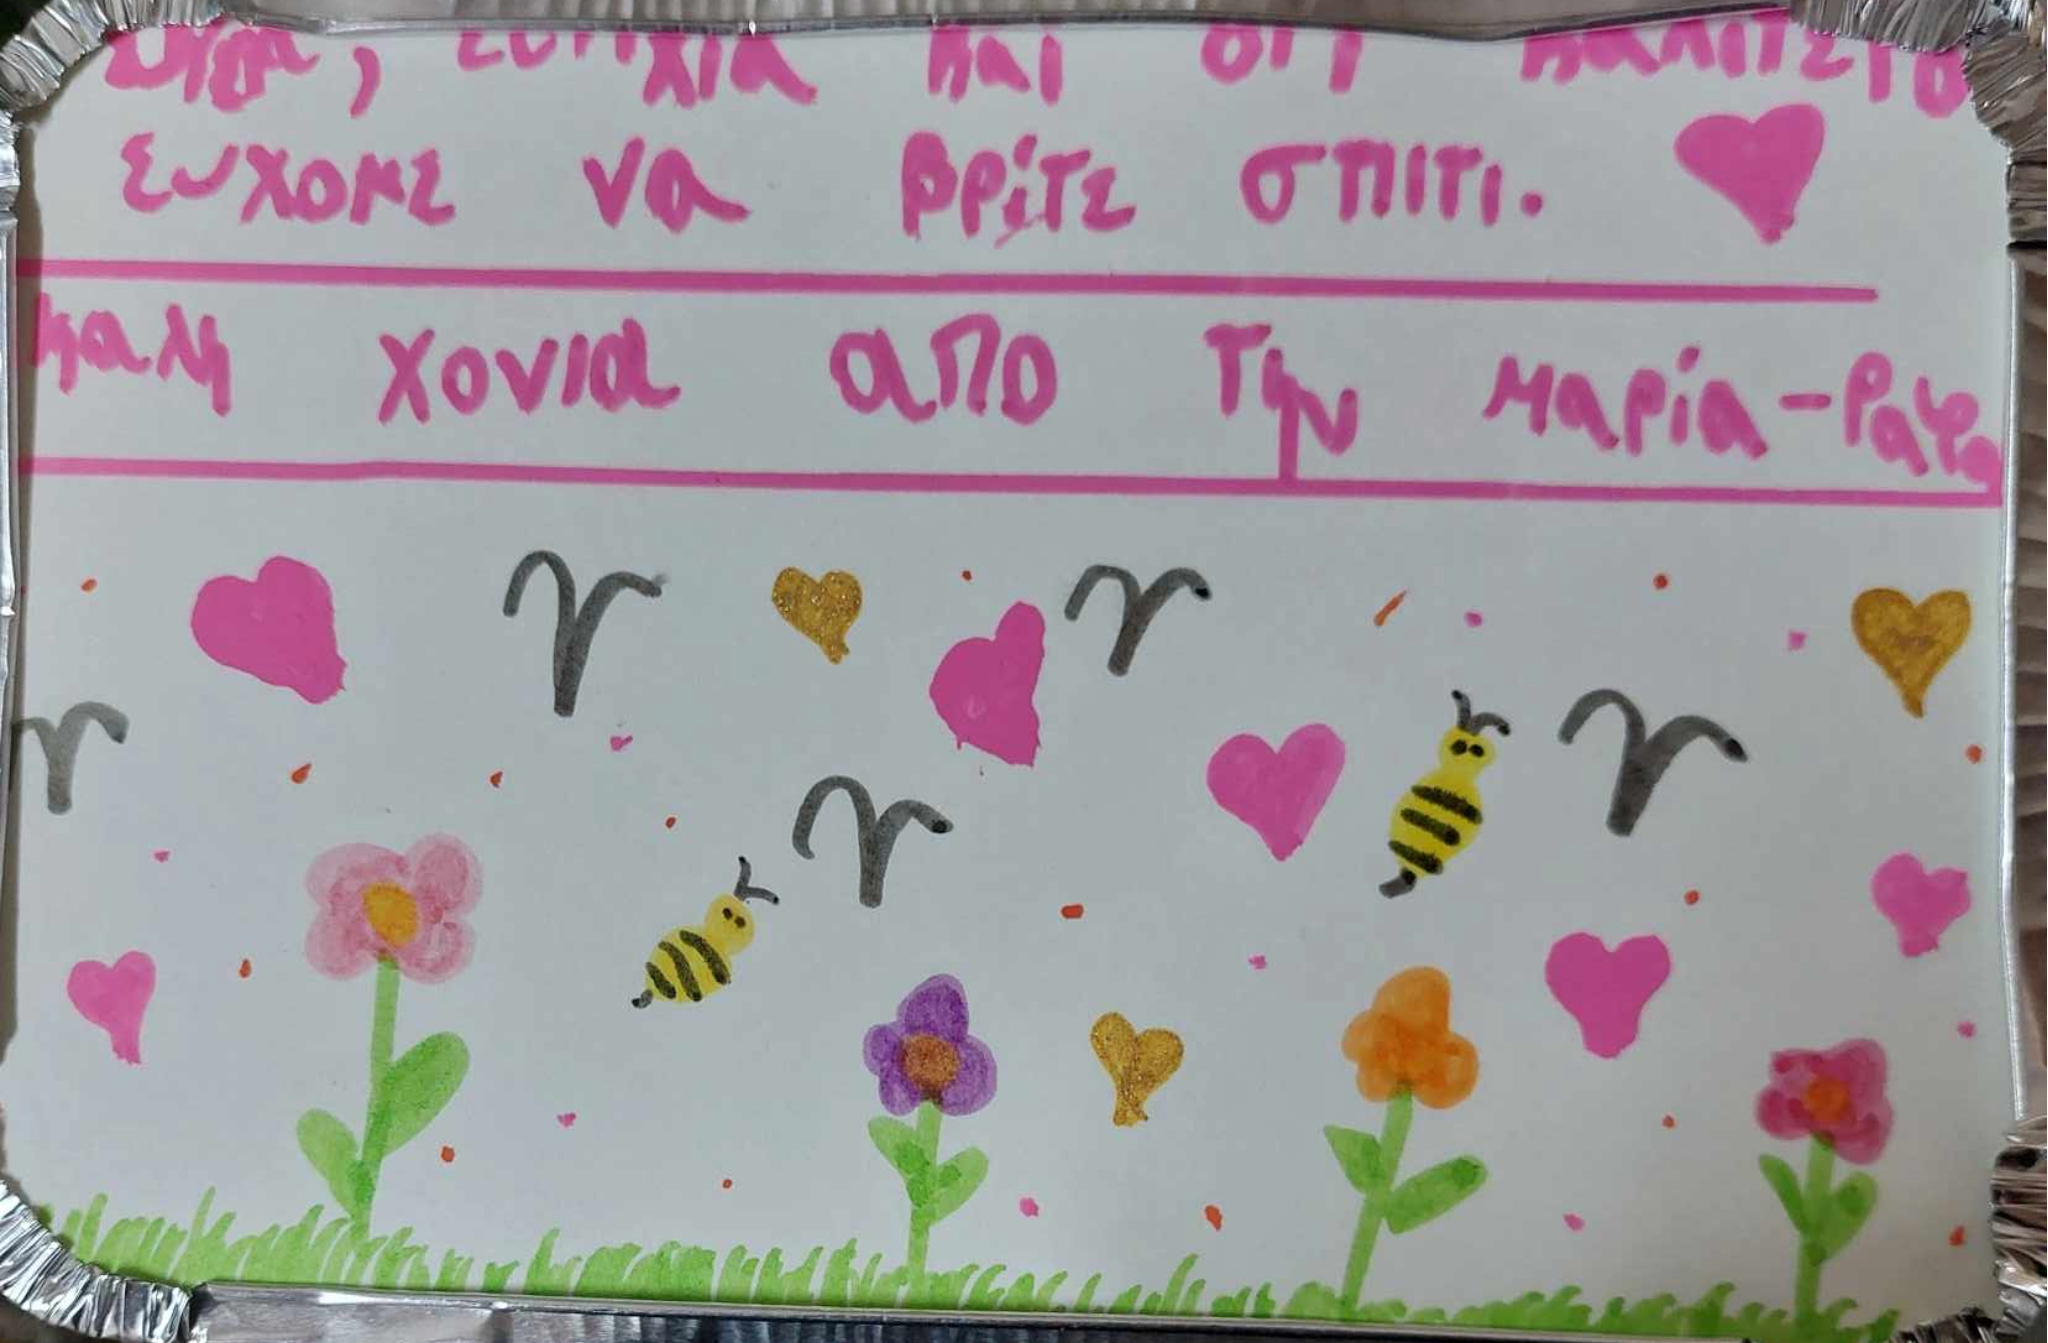 ευτιχία και ότι καλίτερο
ευχομε να βρίτε σπιτι.
καλη χονια απο την Μαρία-Ραφα